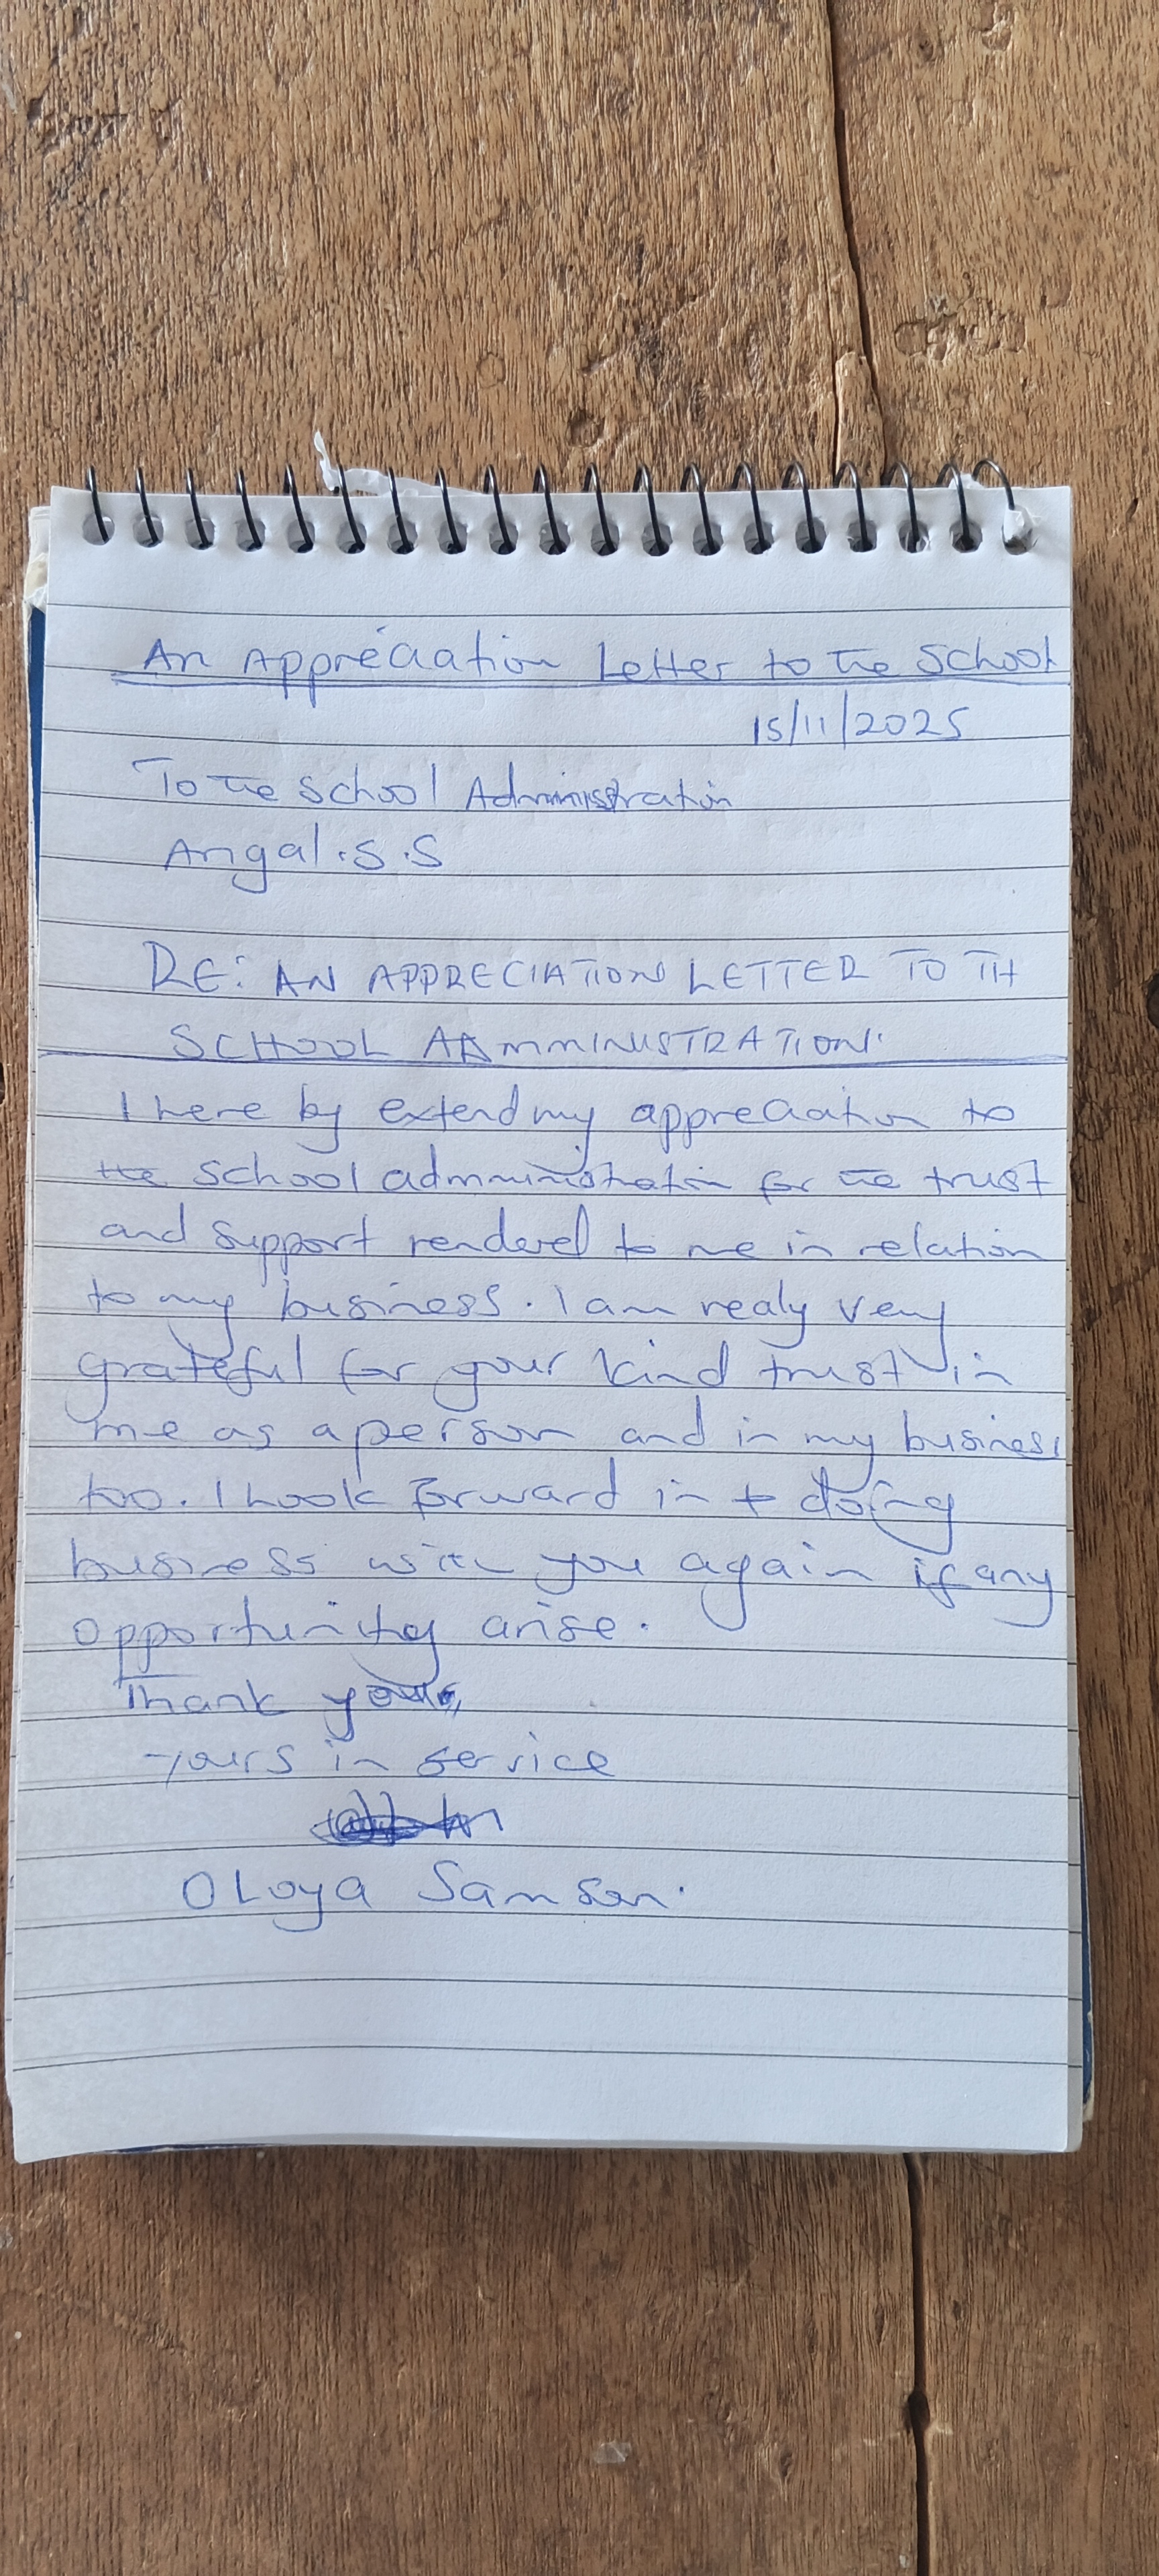 An Appreciation Letter to the School
15/11/2025
To the School Administration
Angal.S.S
RE: AN APPRECIATION LETTER TO TH
SCHOOL ADMMINISTRATION.
I here by extend my appreciation to
the school admministration for the trust
and support rendered to me in relation
to my business. I am realy very
grateful for your kind trust in
me as a person and in my business
too. I look forward in to doing
business with you again if any
opportunity arise.
Thank you,
yours in service
OLoya Samson.